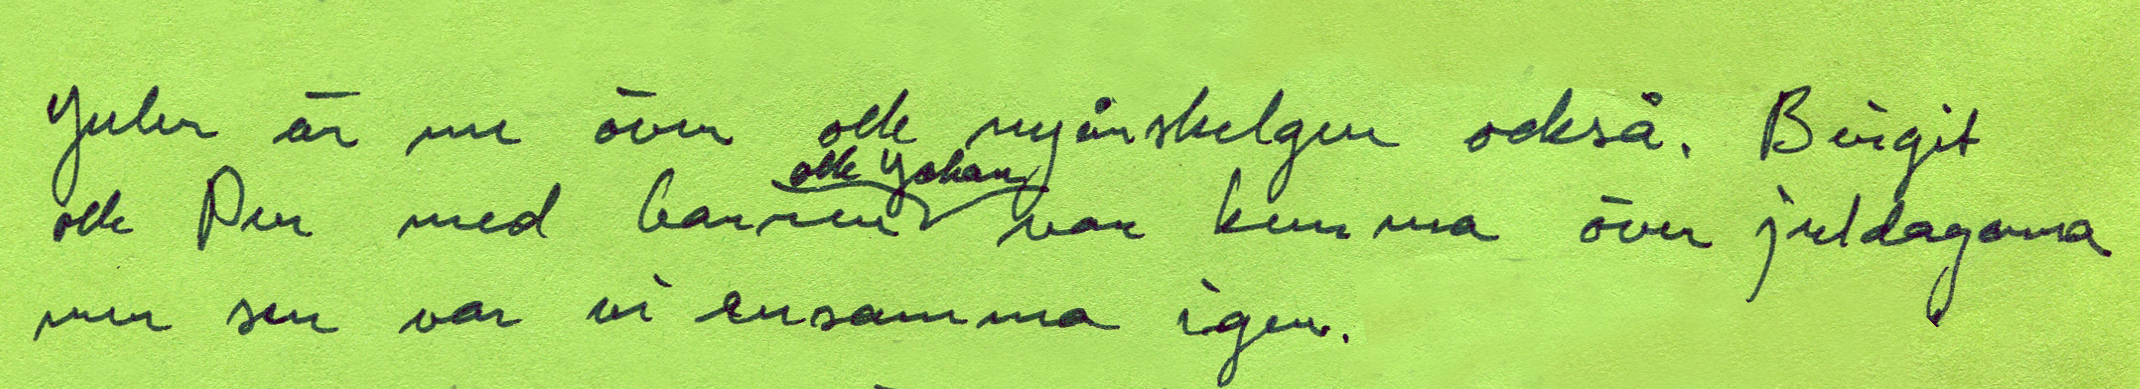 Julen är nu över och nyårshelgen också. Birgit
och Johan
och Per med barnen var hemma över juldagarna
men sen var vi ensamma igen.